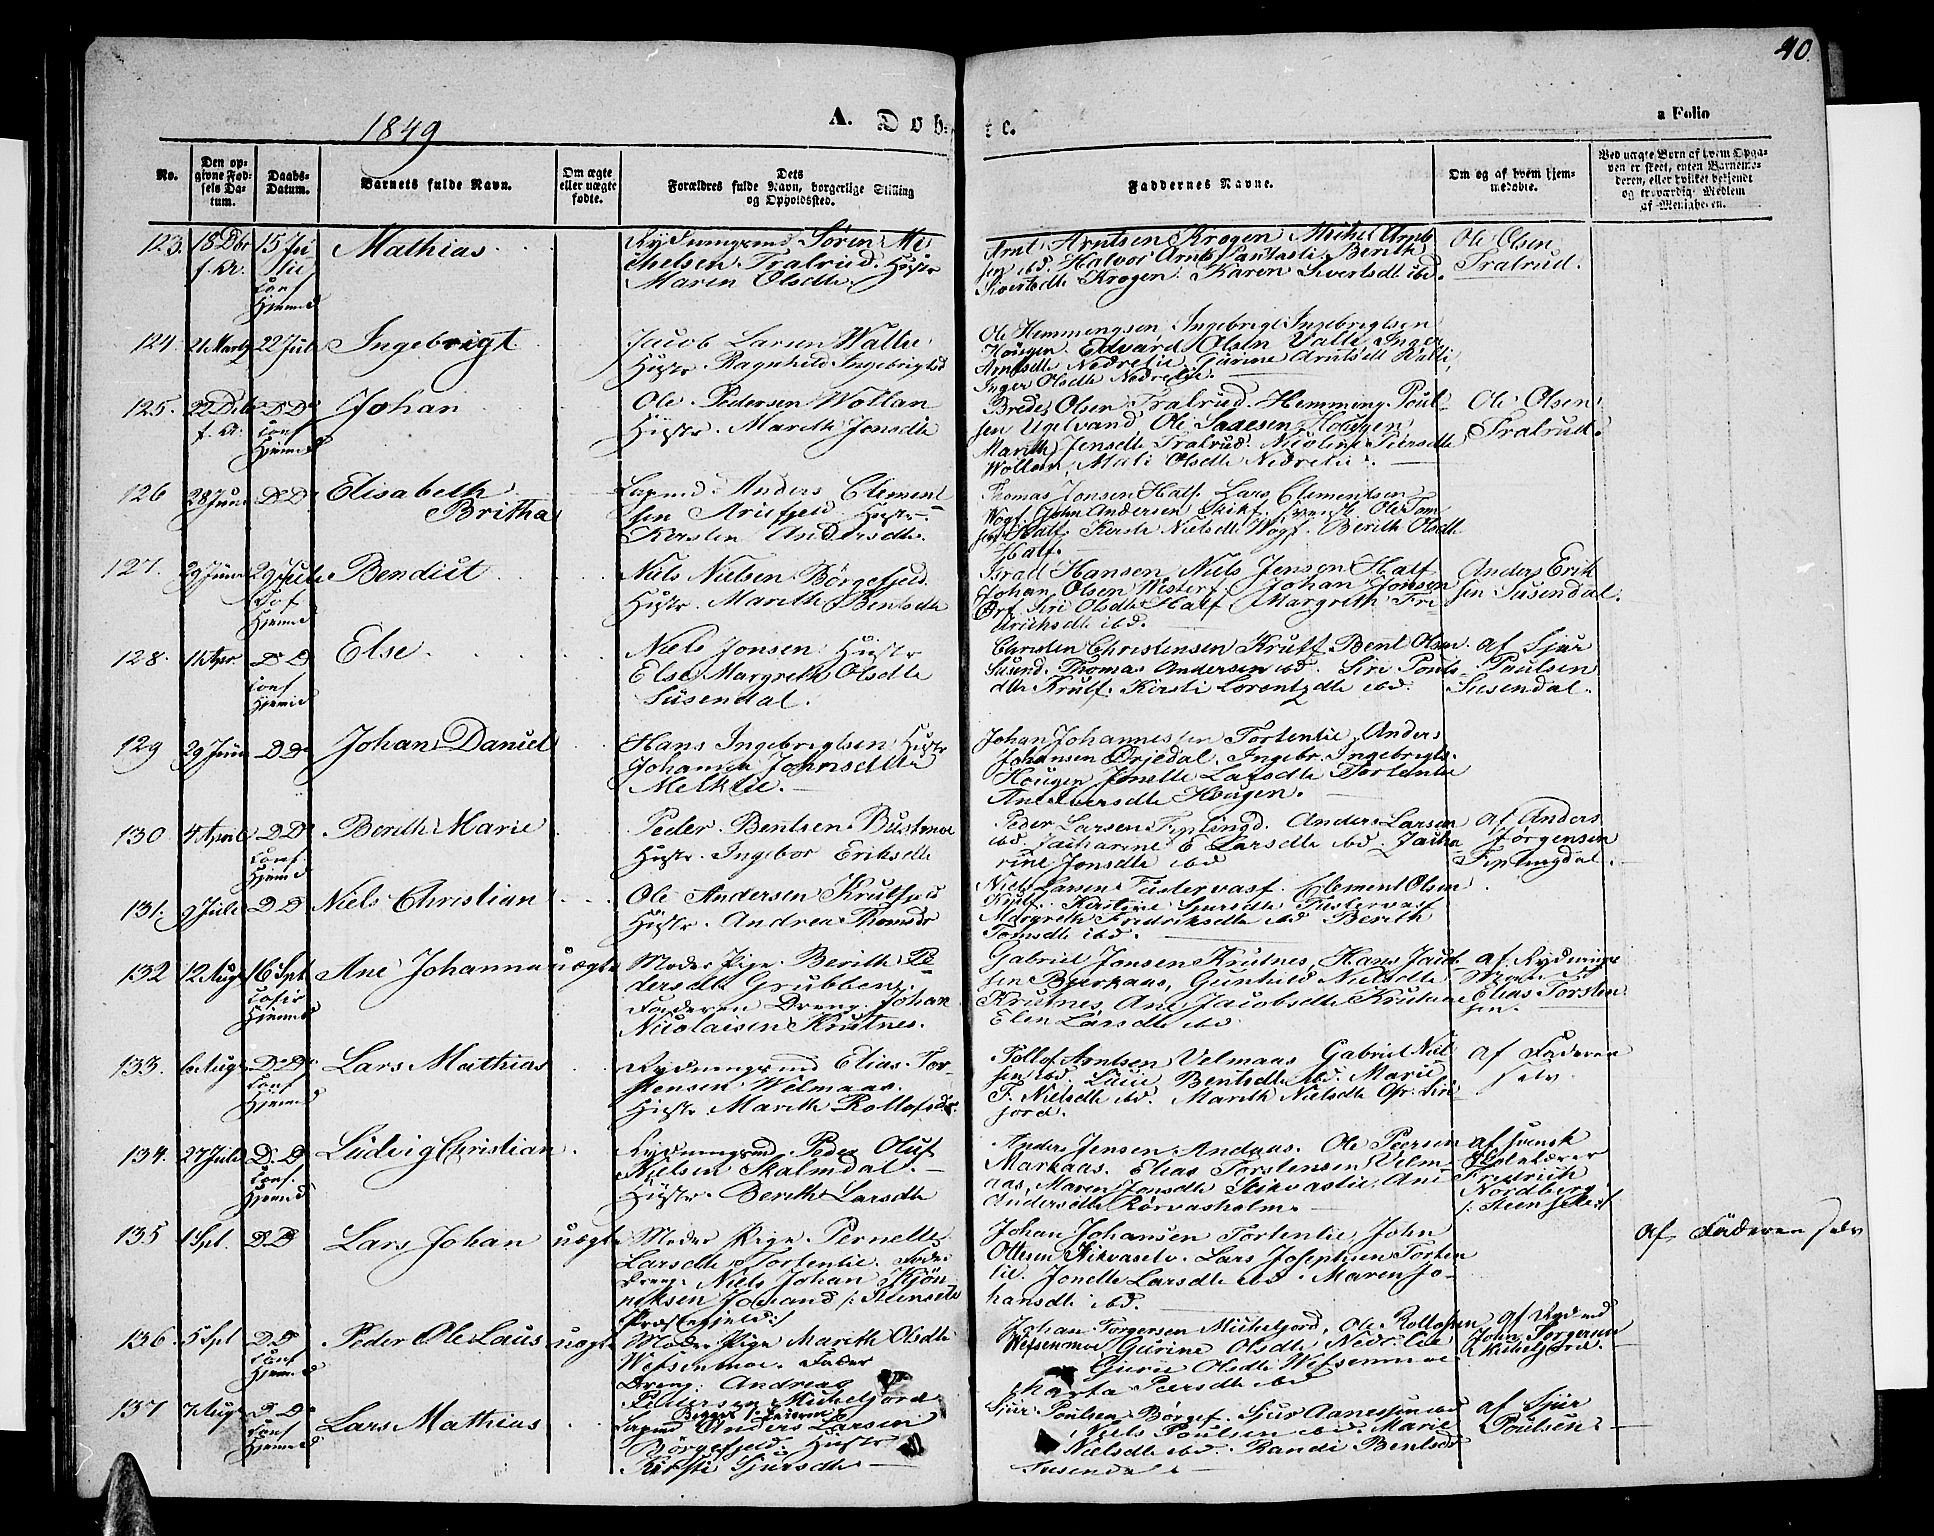 40.
1849
A. Døbte.
a Folio
No.
Den opgivne Fødsels Datum.
Daabs-Datum.
Barnets fulde Navn.
Om ægte eller uægte fødte.
Dets Forældres fulde Navn, borgerlige Stilling og Opholdssted.
Faddernes Navne.
Om og af hvem hjemmedøbte.
Ved uægte Børn af hvem Opgaven er skeet, enten Barnemoderen, eller hvilket bekjendt og troværdig Medlem af Menigheden.
123. 18 Dbr f. A. 15 Juli conf Hjemmed
Mathias
Rydningsmd Søren Mi
chelsen Tralrud. Hustr
Maren Olsdtr
Arnt Arntsen Krogen Michel Arnt
sen ibd. Halvor Arnts Pantastli Berith
Sivertsdtr Krogen. Karen Sivertsdtr ibd.
Ole Olsen
Tralrud.
124. 21 Marts 22 Juli
Ingebrigt
Jacob Larsen Wallie
Hustr Ragnhild Ingebrigtsd
Ole Hemmingsen Ingebrigt Ingebrigtsen
Hougen. Edvard Olsen Valli Inger
Arntsdtr Nedrelie Gurine Arntsdtr
Inger Olsdtr Nedrelie.
125. 22 Debr f. A. D D conf Hjemmed
Johan
Ole Pedersen Wollan
Hustr. Marith Jonsdtr
Brede Olsen Tralrud. Hemming Poul-
sen Ugelvand, Ole Hougen
Marith Jensdtr Tralrud. Nicoline Peersdtr
Wollan, Mali Olsdtr Nedrelie.
Ole Olsen
Tralrud.
126 28 Juni D D
Elisabeth
Britha
Lapmd Anders Clement
sen Hustr.
Kirsten Andersdtr.
Thomas Jonsen Hatf. Lars Clementsen
John Andersen Ole Tom
sen Hatf. Kirste Nielsdtr Berith Olsdtr
Hatf.
127. 29 Juni 29 Juli Conf Hjemmed
Bendict
Niels Nielsen Børgefjeld
Hustr. Marith Bentsdtr
Israel Hansen Niels Jensen Hatf
Johan Olsen Johan Jonsen
Siri Olsdtr Hatf Margreth Fri
drichsdtr ibd.
Anders Erik
sen Susendal.
128. D D conf Hjemmed
Else
Niels Jonsen Hustr
Else Margreth Olsdtr
Susendal.
Christen Christensen Krutf Bent Olsen
Susend. Thomas Andersen ibd. Siri Pouls
dtr Krutf. Kirsti Lorentzdtr ibd.
af Sjur
Paulsen
Susendal.
129 29 Juni D D
Johan Daniel
Hans Ingebrigtsen Hustr
Johanna Johnsdtr
Melklie.
Johan Johannessen Tortenlie, Anders
Johansen Ørjedal. Ingebr. Ingebrigts.
Hougen Jonette Larsdtr Tortenlie
Ane Iversdtr Hougen.
130 4 April D D conf. Hjemmed
Berith Marie
Peder Bentsen Bustmoe
Hustr. Ingebor Eriksdtr
Peder Larsen Fiplingd. Anders Larsen
ibd. Zacharine E Larsdtr ibd. Zacha
rine Jonsdtr ibd
af Anders
Jørgensen
Fiplingdal.
131. 9 Juli D D
Niels Christian
Ole Andersen Krutfjeld
Hustr. Andrea Thomsdr
Niels Larsen Tustervasf. Clement Olsen
Krutf. Kirstine Sjursdtr Tustervasf
Margreth Fredriksdtr ibd Berith
Tomsdtr ibd.
132 12 Aug 16 Spt Hjemmed
Ane Johanna
uægte
Moder Pige Berith Pe
dersdtr Grubben.
Faderen Dreng Johan
Nicolaisen Krutnes.
Gabriel Jonsen Krutnes, Hans Jacob
sen Bjerkaas, Gunhild Nielsdtr
Krutnes, Ane Jacobsdtr Krutnes
Elen Larsdtr ibd.
af Rydnings
Man
Elias Torsten
sen.
133. 6 Aug D D conf Hjemmed
Lars Mathias
Rydningsmd Elias Tor-
stensen Welmaas.
Hustr Marith Rollofsdr.
Tollof Arntsen, Velmaas Gabriel Niel
sen ibd. Bentsdtr ibd. Marie
F. Nielsdtr ibd. Marith Nielsdtr
fjord.
af Faderen
selv.
134. 27 Juli D. D conf. Hjemmed
Ludvig Christian
Rydningsmd Peder Oluf
Nielsen Skalmdal.
Hustr. Berith Larsdtr
Anders Jensen Andaas. Ole Peersen
Markaas. Elias Torstensen Velm-
aas, Maren Jonsdtr Ane
Andersdtr Rørvasholm.
af svensk
Skolelærer
Fredrich
Nordberg
135 1 Spt. D D
Lars Johan
uægte
Moder Pige Pernelle
Larsdtr Tortenlie. Fader
Dreng Niels Johan
Præstegjeld :/
Johan Johansen Tortenlie, John
Ottesen Lars Josephsen Torten
lie. Jonette Larsdtr ibd. Maren Jo-
hansdtr ibd.
af Faderen selv
136. 5 Spt D. D conf Hjemmed
Peder Ole Laus
uægte
Moder Pige Marith Olsdtr
Wefsenmoe. Fader
Dreng Andreas
Pedersen Mickeljord
Johan Torgersen Mickeljord, Ole Rollofsen
Wefsenmoe, Gurine Olsdtr Nedr. Lie
Gurie Olsdtr Wefsenmoe
Marta Peersdtr ibd
af Rydmd
John Torgersen
Mickeljord.
137 7 Aug D. D conf Hjemmed
Lars Mathias
Lapmd Anders Larsen
Børgefjeld. Hustr
Kirsti Sjursdtr
Sjur Poulsen Børgef. Sjur Aanessen ibd
Niels Poulsen ibd. Marie
Nielsdtr ibd. Randi Bentsdr
Susendal
af Sjur
Poulsen.